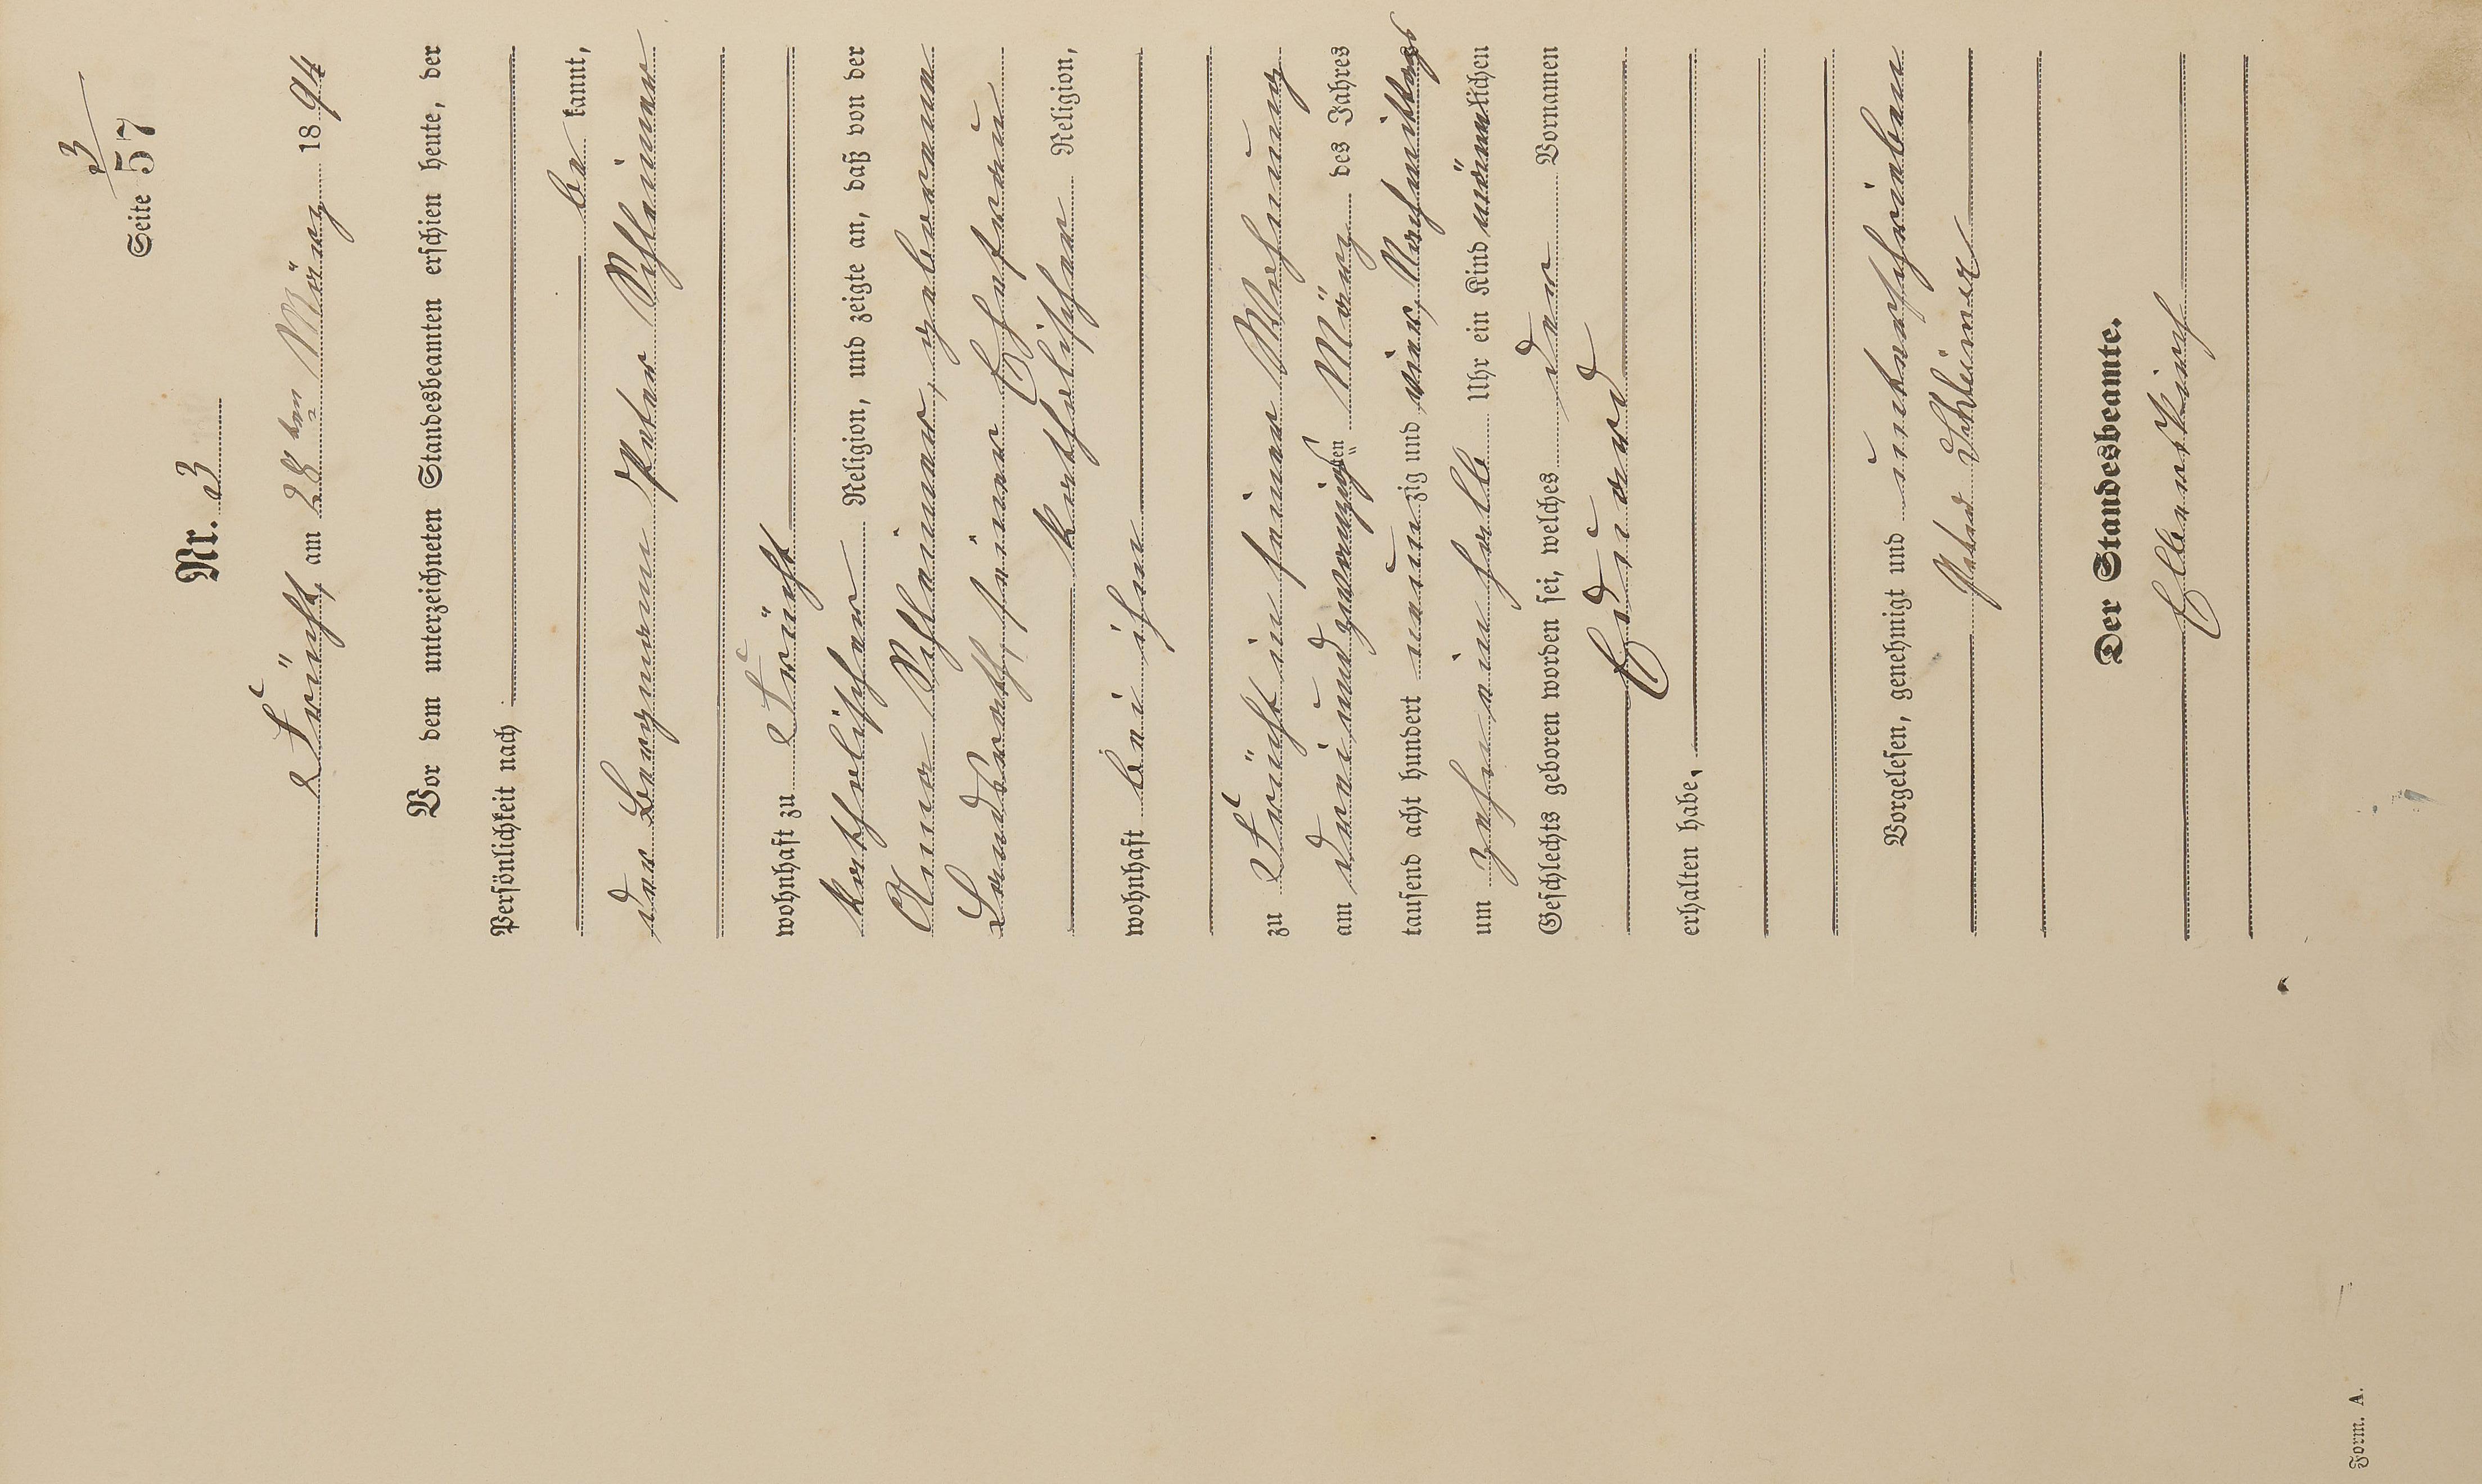 3
Seite 57
Nr. 3
Frücht, am 28ten März 1894
Vor dem unterzeichneten Standesbeamten erschien heute, der
Persönlichkeit nach
be kannt,
der Bergmann Peter Schleimer
wohnhaft zu Frücht
katholischer Religion, und zeigte an, daß von der
Anna Schleimer, geborenen
seiner Ehefrau
katholischer Religion,
wohnhaft bei ihm
zu Frücht in seiner Wohnung
am dreiundzwanzigsten März des Jahres
tausend acht hundert neunzig und vier, Nachmittags
um zehn ein halb Uhr ein Kind männlichen
Geschlechts geboren worden sei, welches den Vornamen
Eduard
erhalten habe.
Vorgelesen, genehmigt und unterschrieben
Peter Schleimer
Der Standesbeamte.
Form. A.